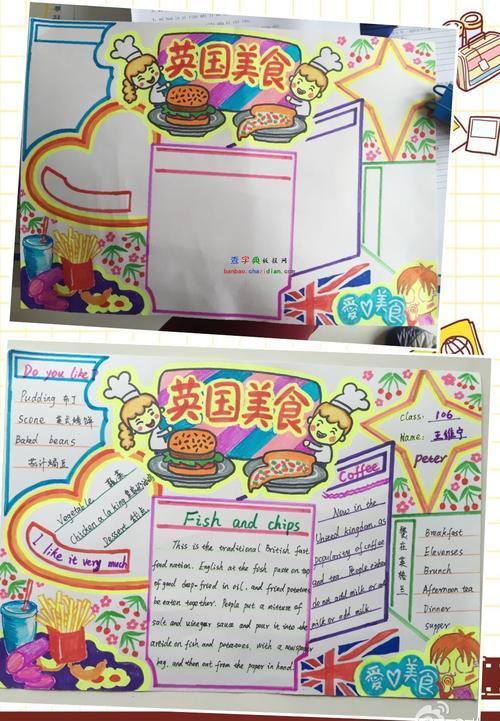 英国美食
查字典手抄报网
banbao.chazidian.com
爱美食
英国美食
Do you like
Pudding 布丁
Scone 英式烤饼
Baked beans
茄汁焗豆
Vegetable 蔬菜
Chicken a la king
Dessert 甜点
I like it very much
Fish and chips
This is the traditional British fast
food nation. English at the fish paste on top
of good deep-fried in oil, and fried potatoes
be eaten together. People put a mixture of
salt and vinegar sauce and pour in into the
article on fish and potatoes, with a newspaper
bag, and then out from the paper in hand.
Coffee
Now in the
United kingdom as
popularity of coffee
and tea. People either
do not add milk or add
or add milk.
Class: 106
Name:
Peter
餐在英格兰
Breakfast
Elevenses
Brunch
Afternoon tea
Dinner
supper
爱美食